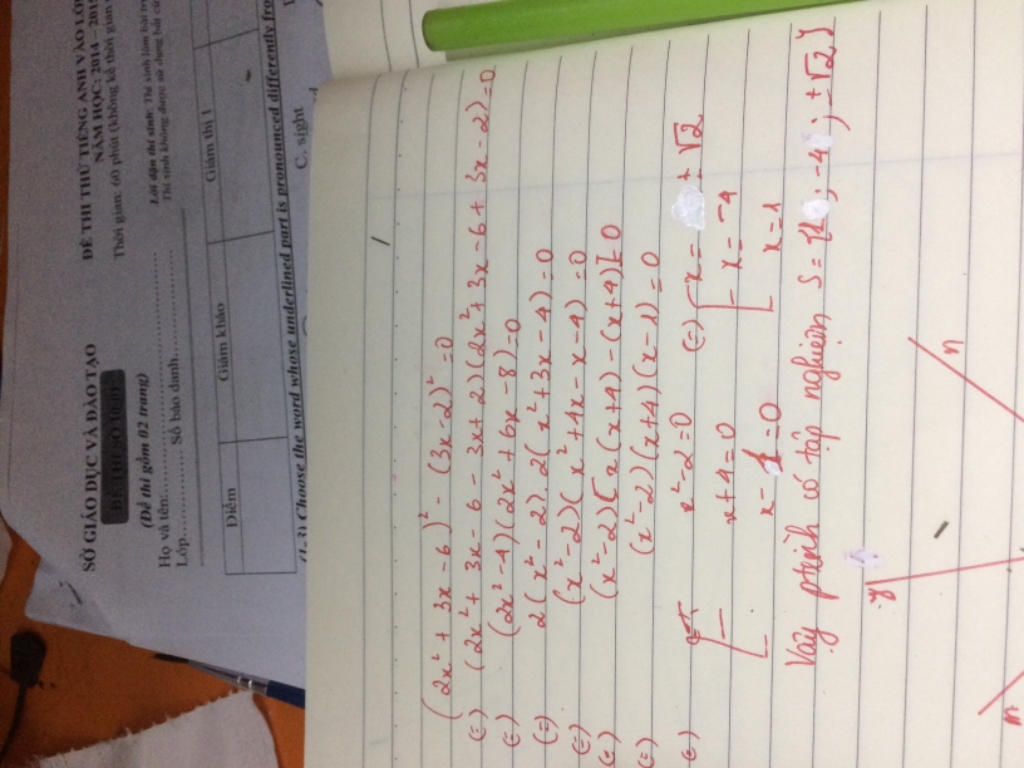 SỞ GIÁO DỤC VÀ ĐÀO TẠO
(Đề thi gồm 02 trang)
ĐỀ THI THỬ TIẾNG ANH VÀO LỚP
NĂM HỌC: 2014 - 201
Thời gian: 60 phút (không kể thời gian
Họ và tên:
Lớp Số báo danh
Lời dặn thí sinh: Thí sinh làm bài
Thí sinh không được sử dụng bất cứ
Điểm Giám khảo Giám thị 1
(1-3) Choose the word whose underlined part is pronounced differently fro
C. sight
(2x² + 3x - 6)² - (3x - 2)² = 0
(=) (2x² + 3x - 6 - 3x + 2)(2x² + 3x - 6 + 3x - 2) = 0
(=) (2x² - 4)(2x² + 6x - 8) = 0
(=) 2(x² - 2).2(x² + 3x - 4) = 0
(=) (x² - 2)(x² + 4x - x - 4) = 0
(=) (x² - 2)[x(x + 4) - (x + 4)] = 0
(=) (x² - 2)(x + 4)(x - 1) = 0
(=) x² - 2 = 0 (=) x = ± √2
x + 4 = 0 x = -4
x - 1 = 0 x = 1
Vậy ptrình có tập nghiệm S = {1; -4; ±√2}
y
n
m